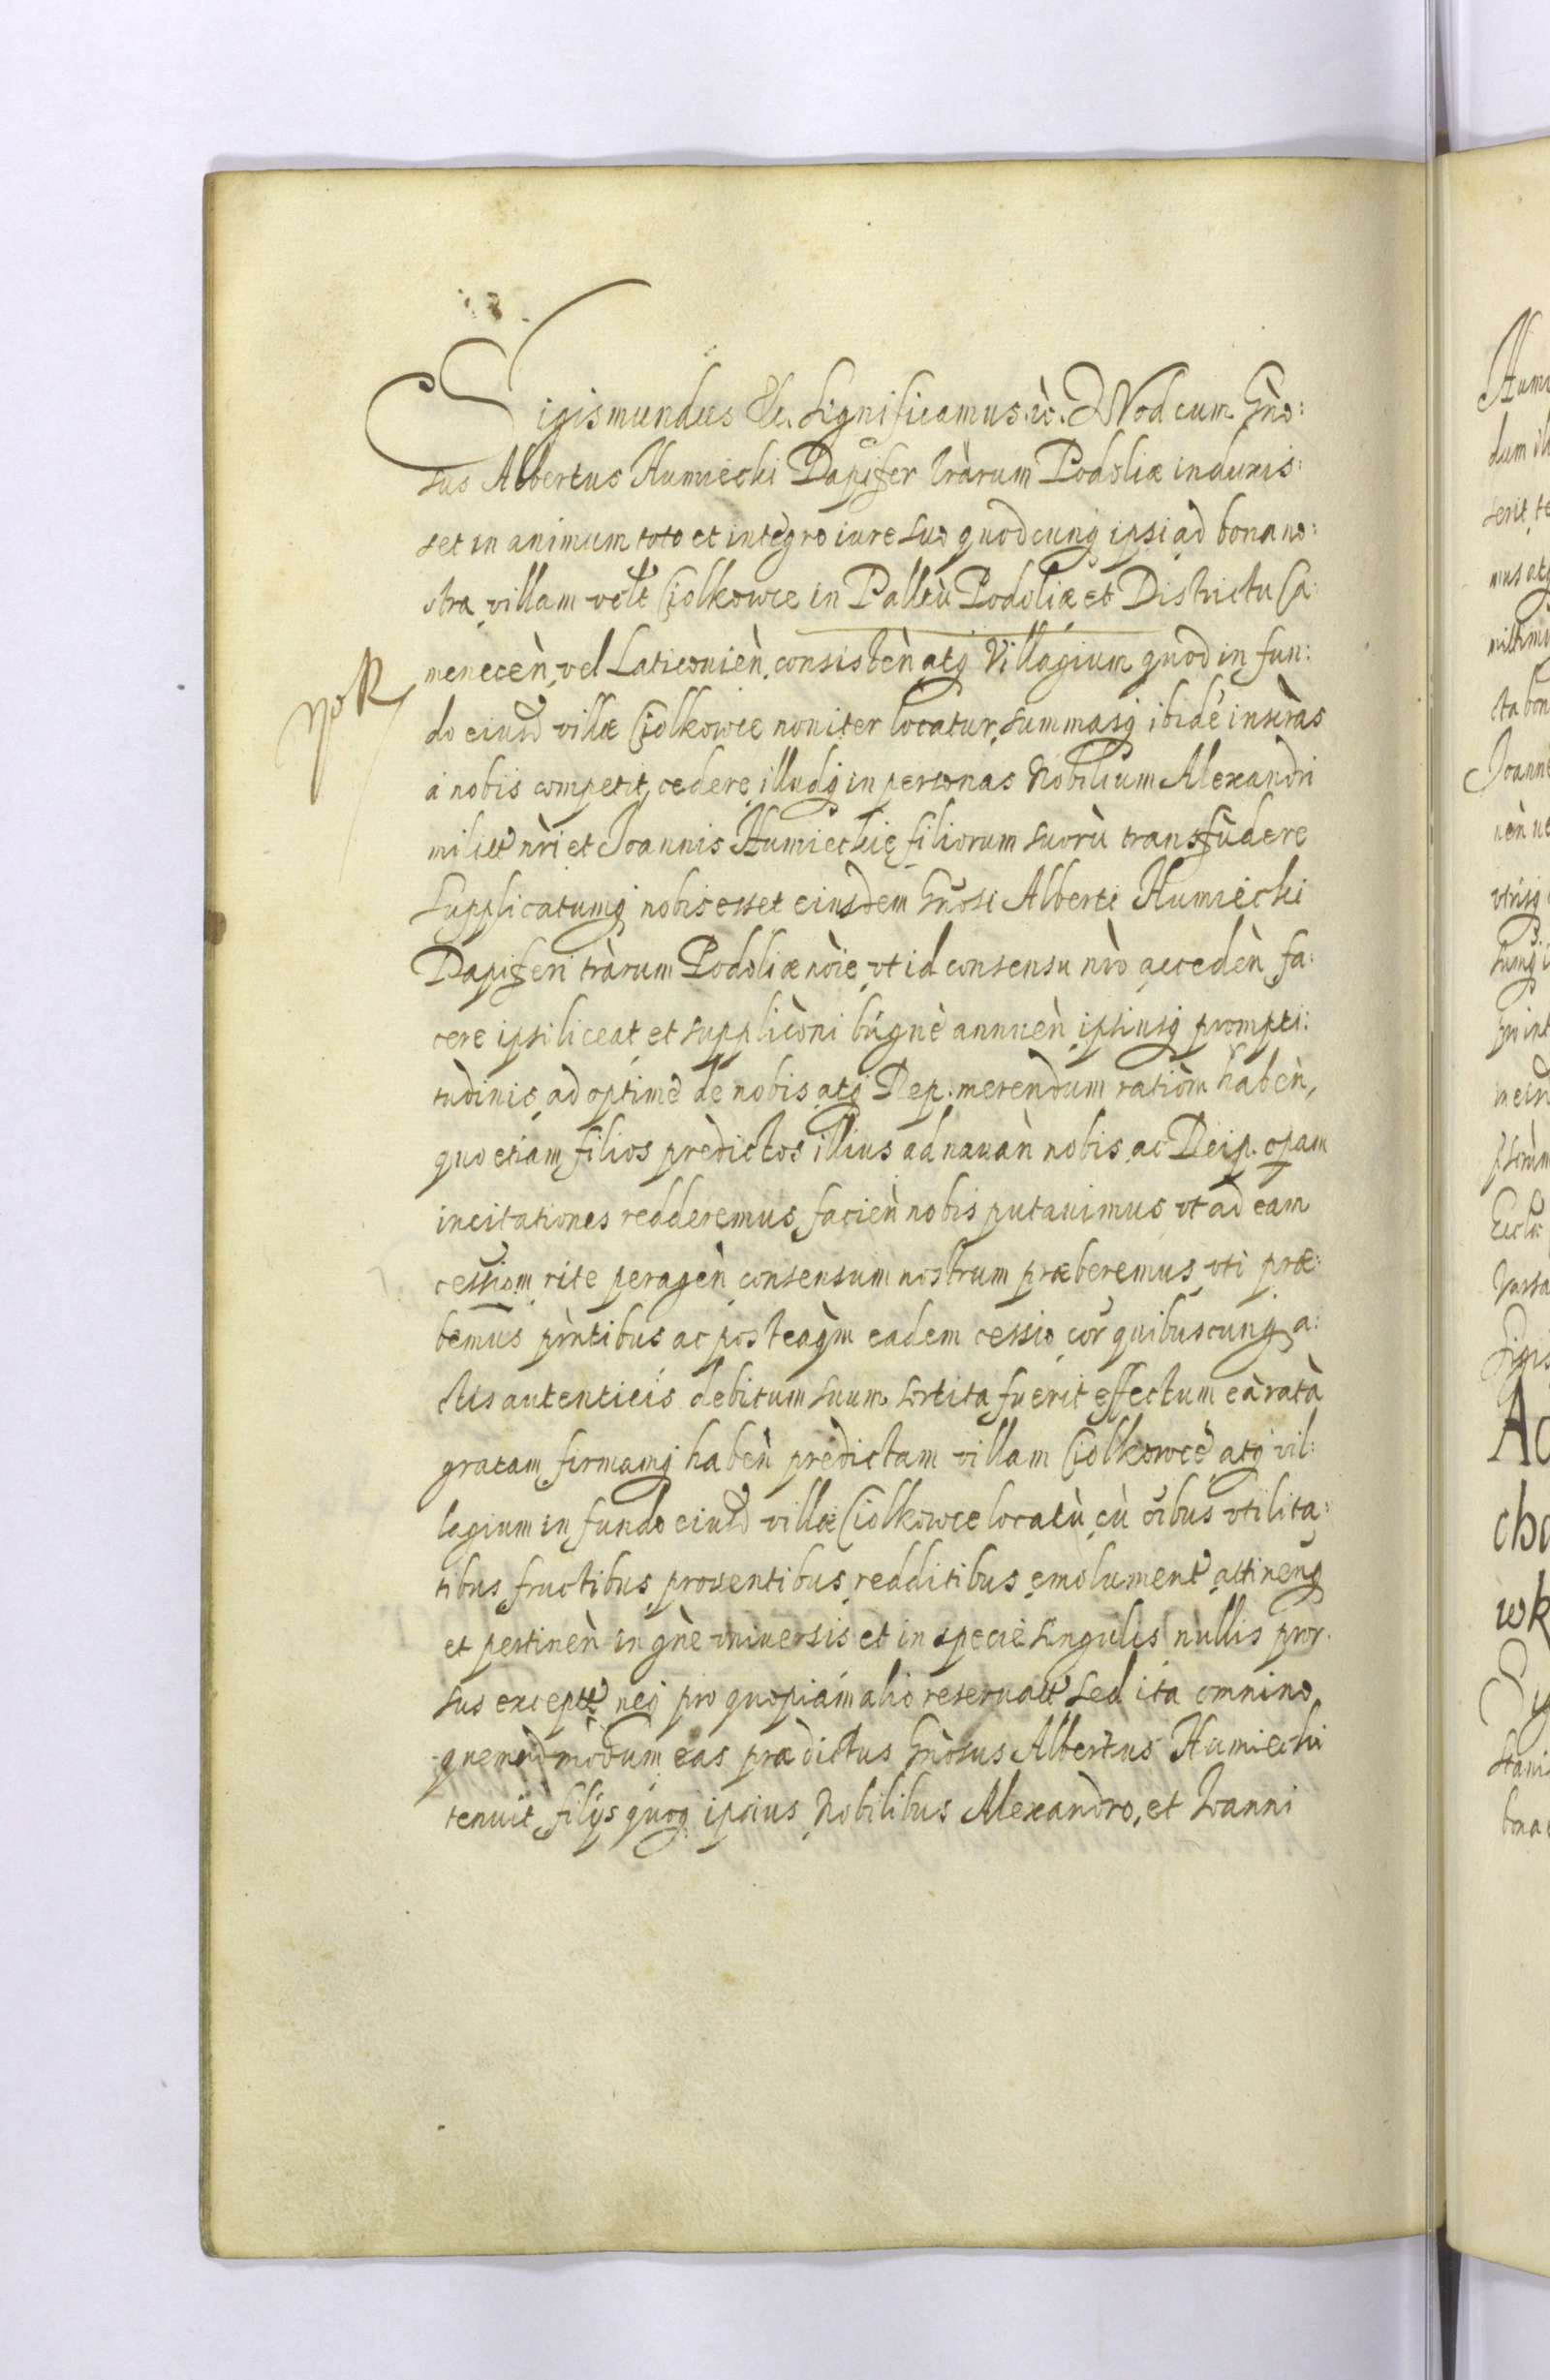 Sigismundus &c. Significamus &c. Quod cum Gn̄o:
sus Albertus Humiecki Dapifer tr̄arum Podoliæ induxis:
set in animum toto et integro iure suo quodcunq ipsi ad bona no:
stra villam vclt Ciolkowce in Palltù Podoliæ et Districtu Ca:
menecen̄ vel Laticouien̄ consisten̄ atq Villagium quod in fun:
do eiusd villæ Ciolkowce nouiter locatur, summasq ibidē inscr̄as
a nobis competit, cedere illudq in personas Nobilium Alexandri
milit nr̄i et Joannis Humieckie filiorum suorū transfūdere
Supplicatumq nobis esset eiusdem Gn̄osi Alberti Humiecki
Dapiferi tr̄arum Podoliæ nōie vt id consensu nr̄o acceden̄ fa:
cere ipsi liceat et supplicōni bn̄gnè annuen̄ ipsiusq prompti:
tudinis ad optime de nobis atq Rep. merendum ratiōm haben̄,
quo etiam filios prædictos illius ad nauan̄ nobis ac Reip. opam
incitationes redderemus, facien̄ nobis putauimus vt ad eam
cessiom rite peragen̄ consensum nostrum præberemus vti præ:
bemus pn̄tibus ac posteaqm̄ eadem cessio cor quibuscunq a:
ctis autenticis debitum suum sortita fuerit effectum eā ratā
gratam firmamq haben̄ prædictam villam Ciolkowce atq vil:
lagium in fundo eiusd villæ Ciolkowce locatū cū oībus vtilita:
tibus fructibus prouentibus redditibus emolument attinenq
et pertinen̄ in gn̄e vniuersis et in specie singulis nullis pror:
sus except neq pro quopiam alio reseruatt sed ita omnino
quemadmodum eas prædictus Gn̄osus Albertus Humiecki
tenuit, filijs quoq ipsius Nobilibus Alexandro, et Joanni